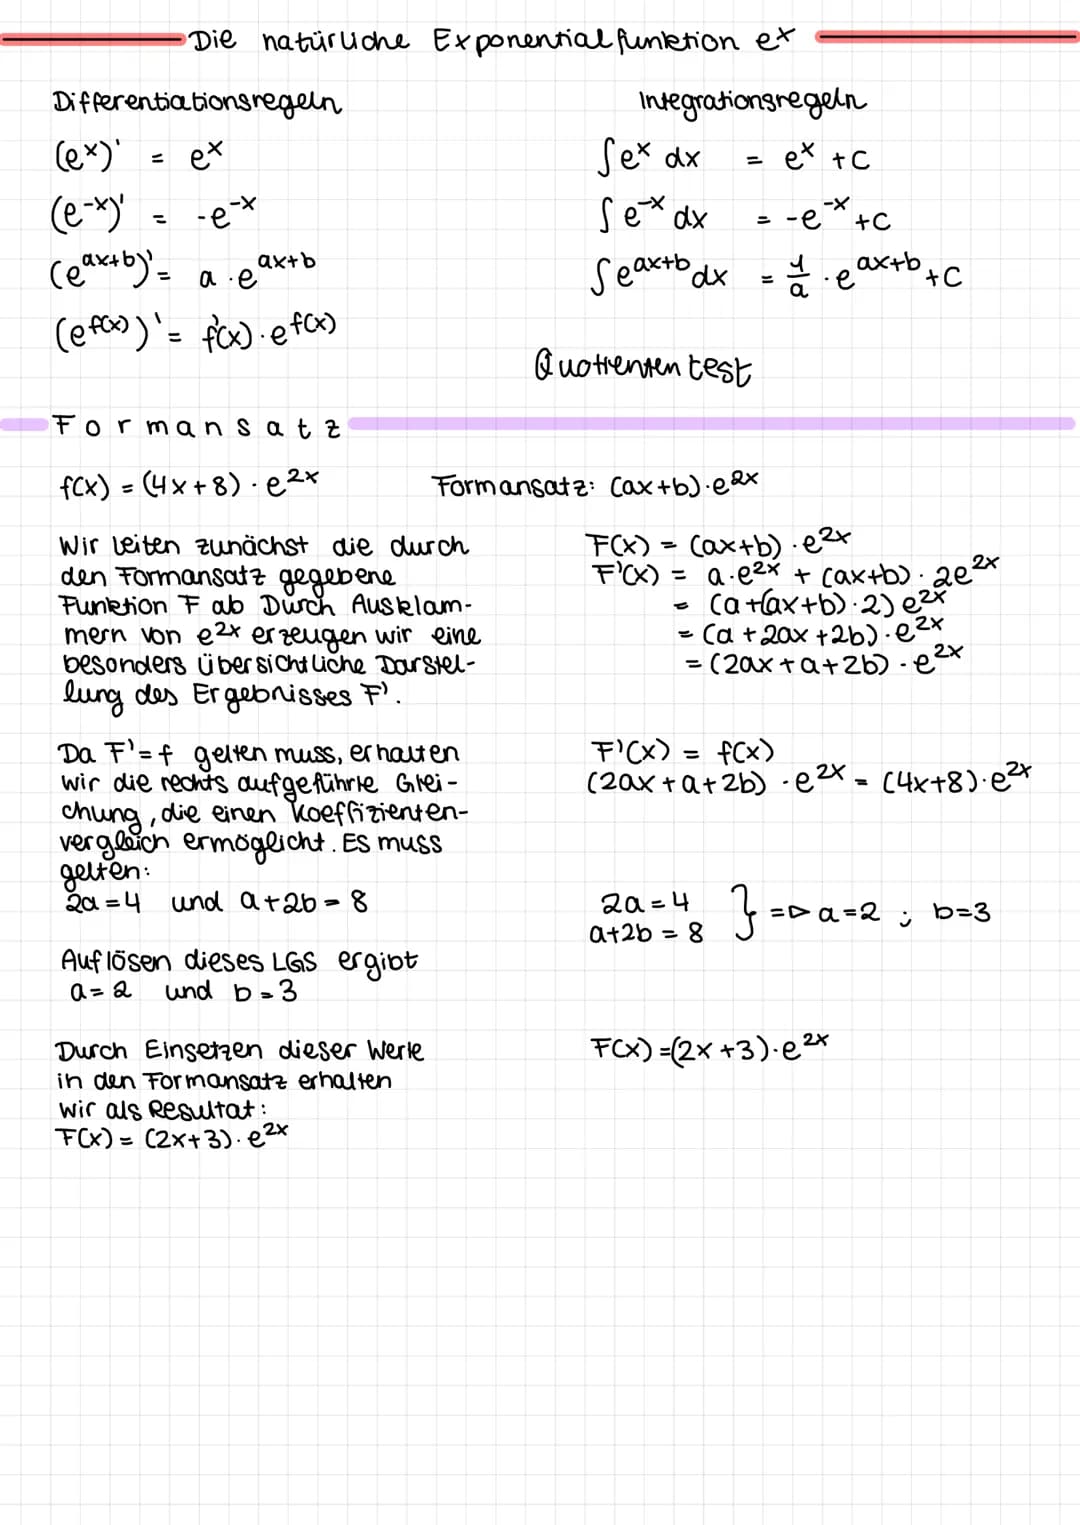 Die natürliche Exponentialfunktion eˣ
Differentiationsregeln
(eˣ)' = eˣ
(e⁻ˣ)' = -e⁻ˣ
(eᵃˣ⁺ᵇ)' = a · eᵃˣ⁺ᵇ
(e^f(x))' = f'(x) · e^f(x)
Integrationsregeln
∫eˣ dx = eˣ + C
∫e⁻ˣ dx = -e⁻ˣ + C
∫eᵃˣ⁺ᵇ dx = 1/a · eᵃˣ⁺ᵇ + C
Quotienten test
Formansatz
f(x) = (4x+8) · e²ˣ
Formansatz: (ax+b)·e²ˣ
Wir leiten zunächst die durch
den Formansatz gegebene
Funktion F ab Durch Ausklam-
mern von e²ˣ erzeugen wir eine
besonders übersichtliche Darstel-
lung des Ergebnisses F'.
F(x) = (ax+b) · e²ˣ
F'(x) = a·e²ˣ + (ax+b) · 2e²ˣ
= (a+(ax+b)·2) e²ˣ
= (a + 2ax + 2b) · e²ˣ
= (2ax + a + 2b) · e²ˣ
Da F'=f gelten muss, erhalten
wir die rechts aufgeführte Glei-
chung, die einen Koeffizienten-
vergleich ermöglicht. Es muss
gelten:
2a = 4 und a+2b = 8
F'(x) = f(x)
(2ax + a + 2b) · e²ˣ = (4x+8)·e²ˣ
2a = 4
a+2b = 8 } => a = 2 ; b=3
Auflösen dieses LGS ergibt
a = 2 und b = 3
Durch Einsetzen dieser Werte
in den Formansatz erhalten
wir als Resultat:
F(x) = (2x+3) · e²ˣ
F(x) = (2x+3)·e²ˣ